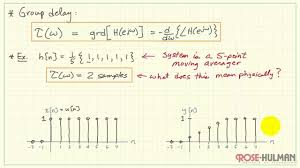 * Group delay:
τ(ω) = grd[H(e^jω)] = -d/dω {∠H(e^jω)}
* Ex. h[n] = 1/5 {1, 1, 1, 1, 1} ← System is a 5-point moving averager
τ(ω) = 2 samples ← what does this mean physically?
x[n] = u[n]
y[n]
ROSE-HULMAN